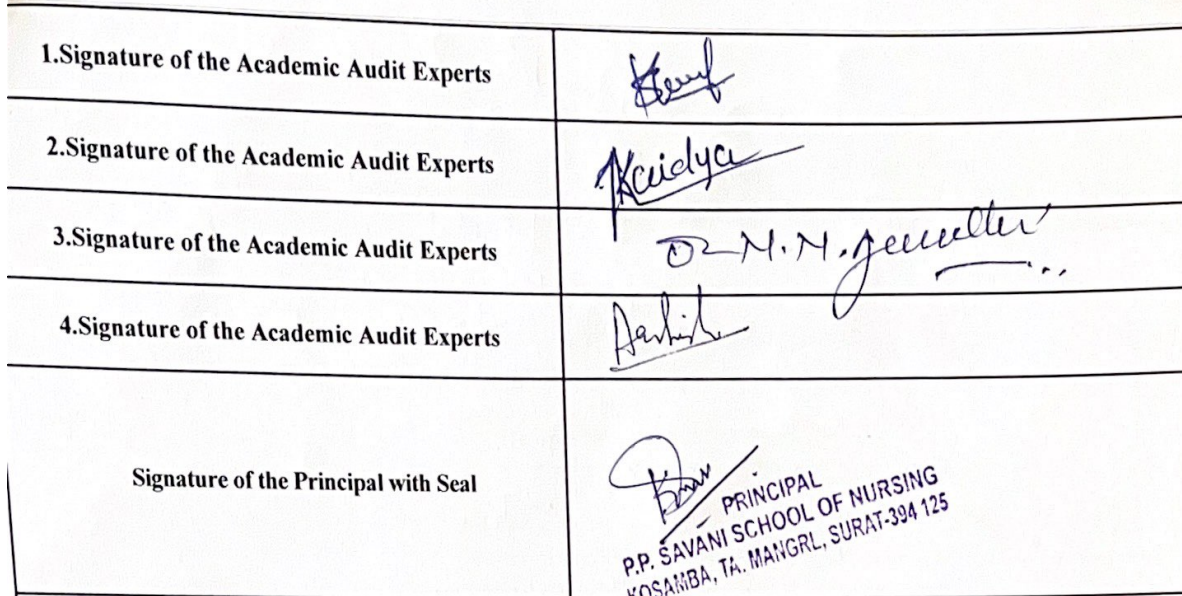 1.Signature of the Academic Audit Experts
2.Signature of the Academic Audit Experts
3.Signature of the Academic Audit Experts
M.M.
4.Signature of the Academic Audit Experts
Signature of the Principal with Seal
PRINCIPAL
P.P. SAVANI SCHOOL OF NURSING
KOSAMBA, TA. MANGRL, SURAT-394 125